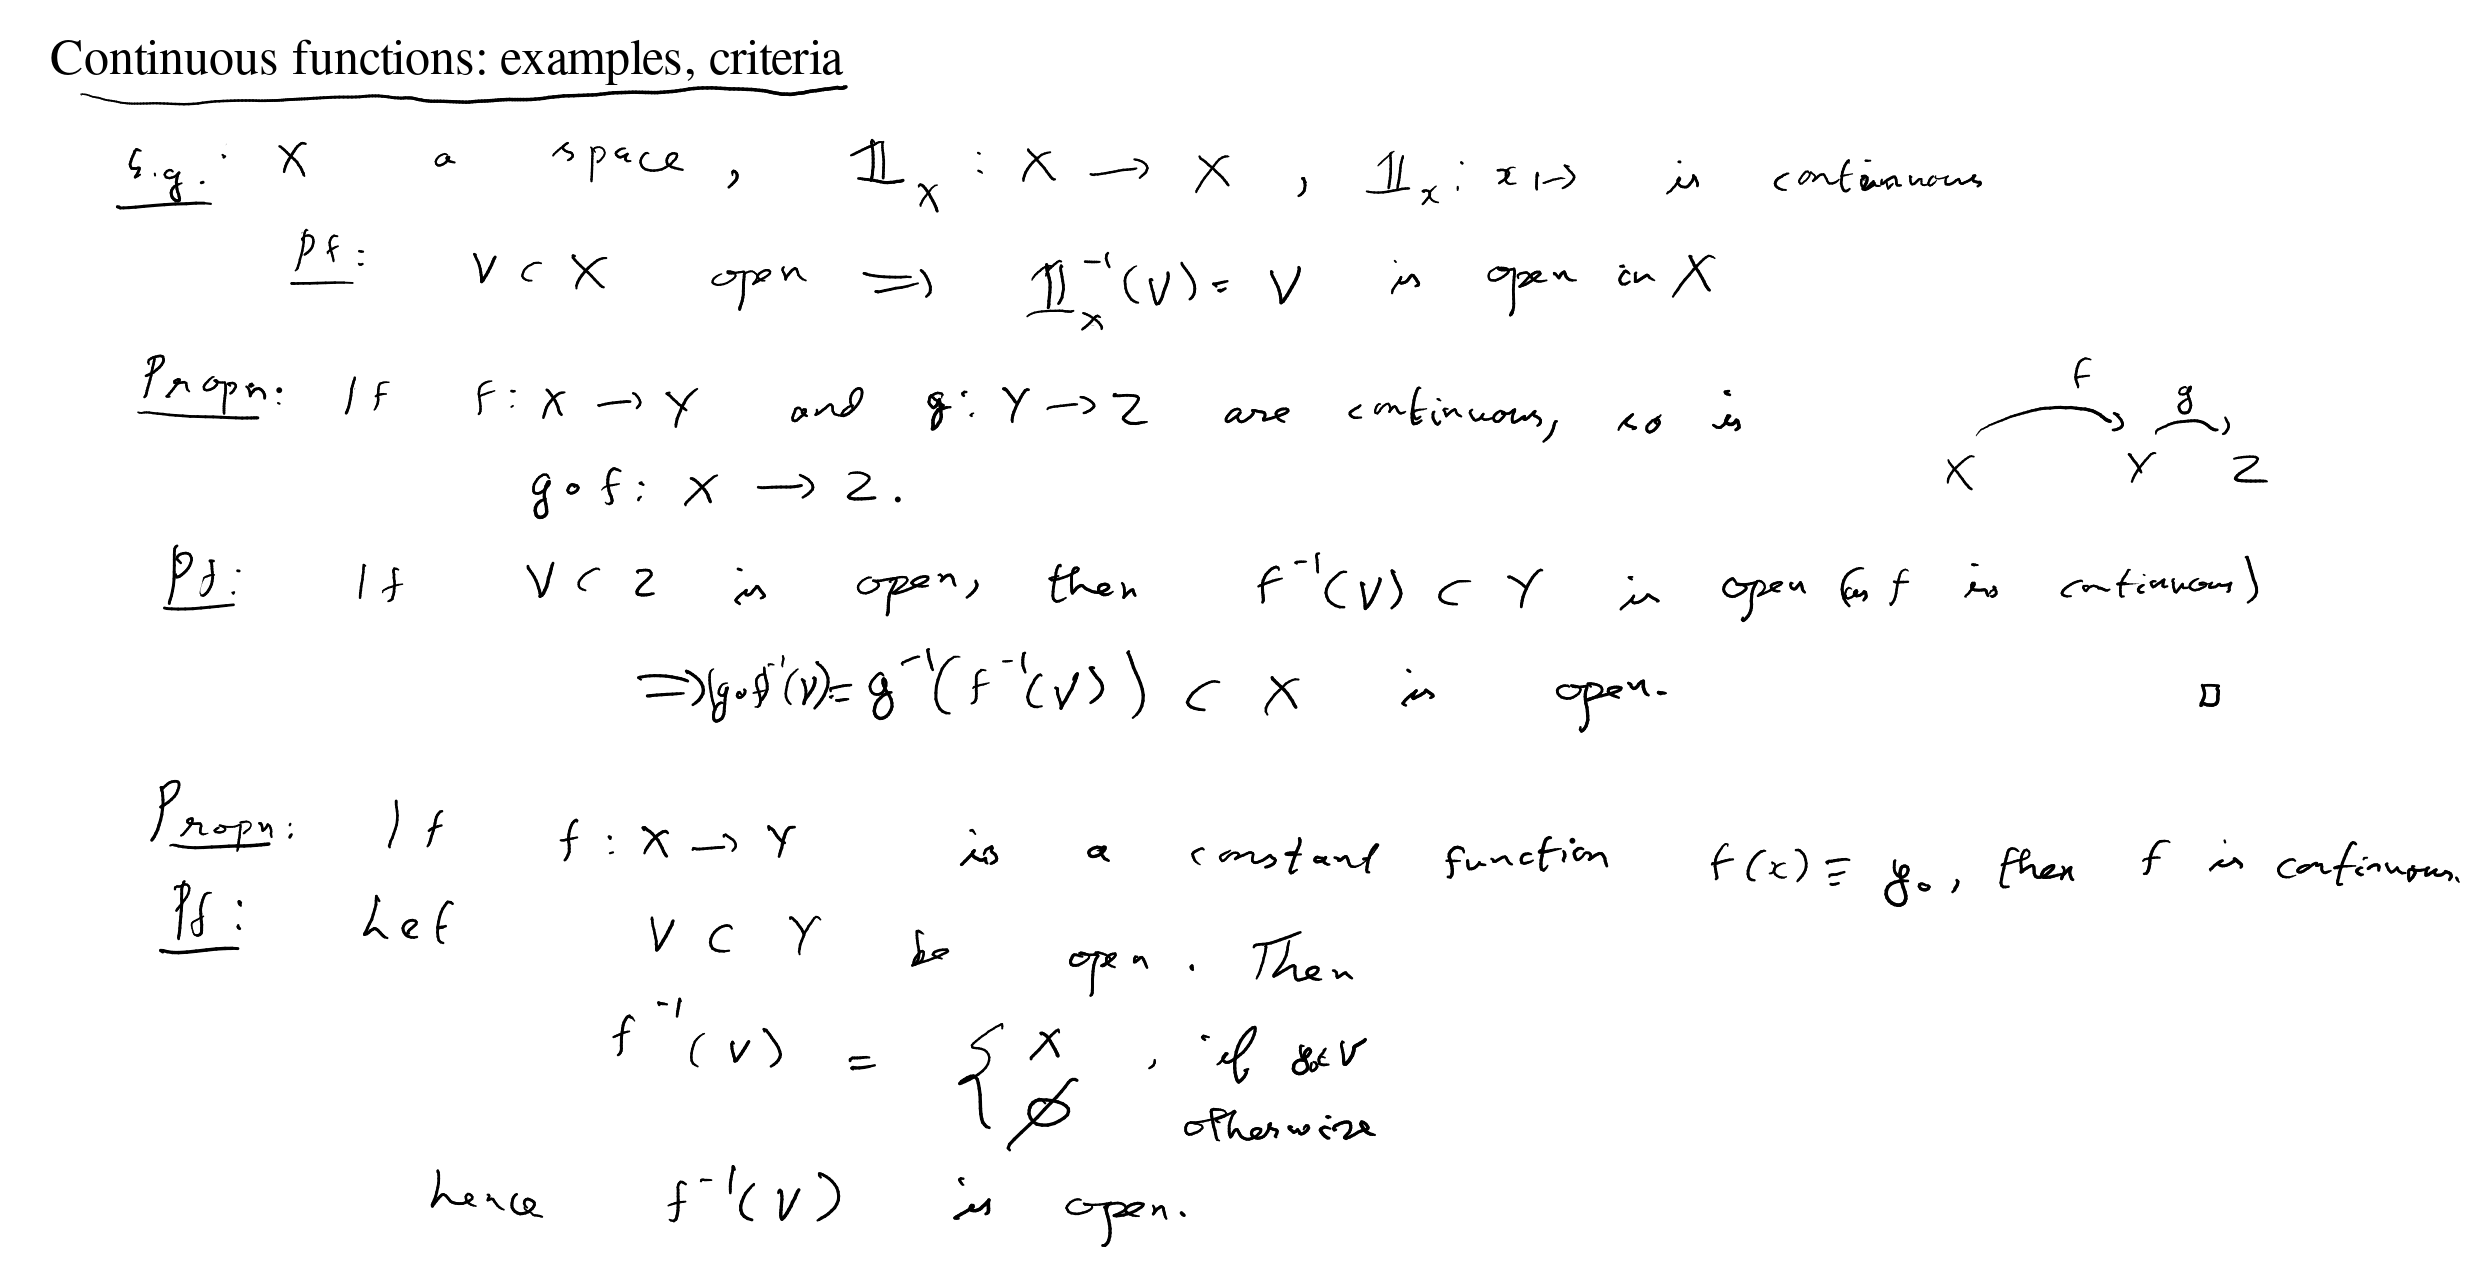 Continuous functions: examples, criteria
E.g.: X a space, 𝟙_X : X → X, 𝟙_X : x ↦ is continuous
Pf: V ⊂ X open ⇒ 𝟙_X^{-1}(V) = V is open in X
Propn: If f: X → Y and g: Y → Z are continuous, so is
g∘f: X → Z.
f g
X Y Z
Pf: If V ⊂ Z is open, then f^{-1}(V) ⊂ Y is open (as f is continuous)
⇒ (g∘f)^{-1}(V) = g^{-1}(f^{-1}(V)) ⊂ X is open. □
Propn: If f: X → Y is a constant function f(x) ≡ y₀, then f is continuous.
Pf: Let V ⊂ Y be open. Then
f^{-1}(V) = { X, if y₀∈V
∅ otherwise
hence f^{-1}(V) is open.